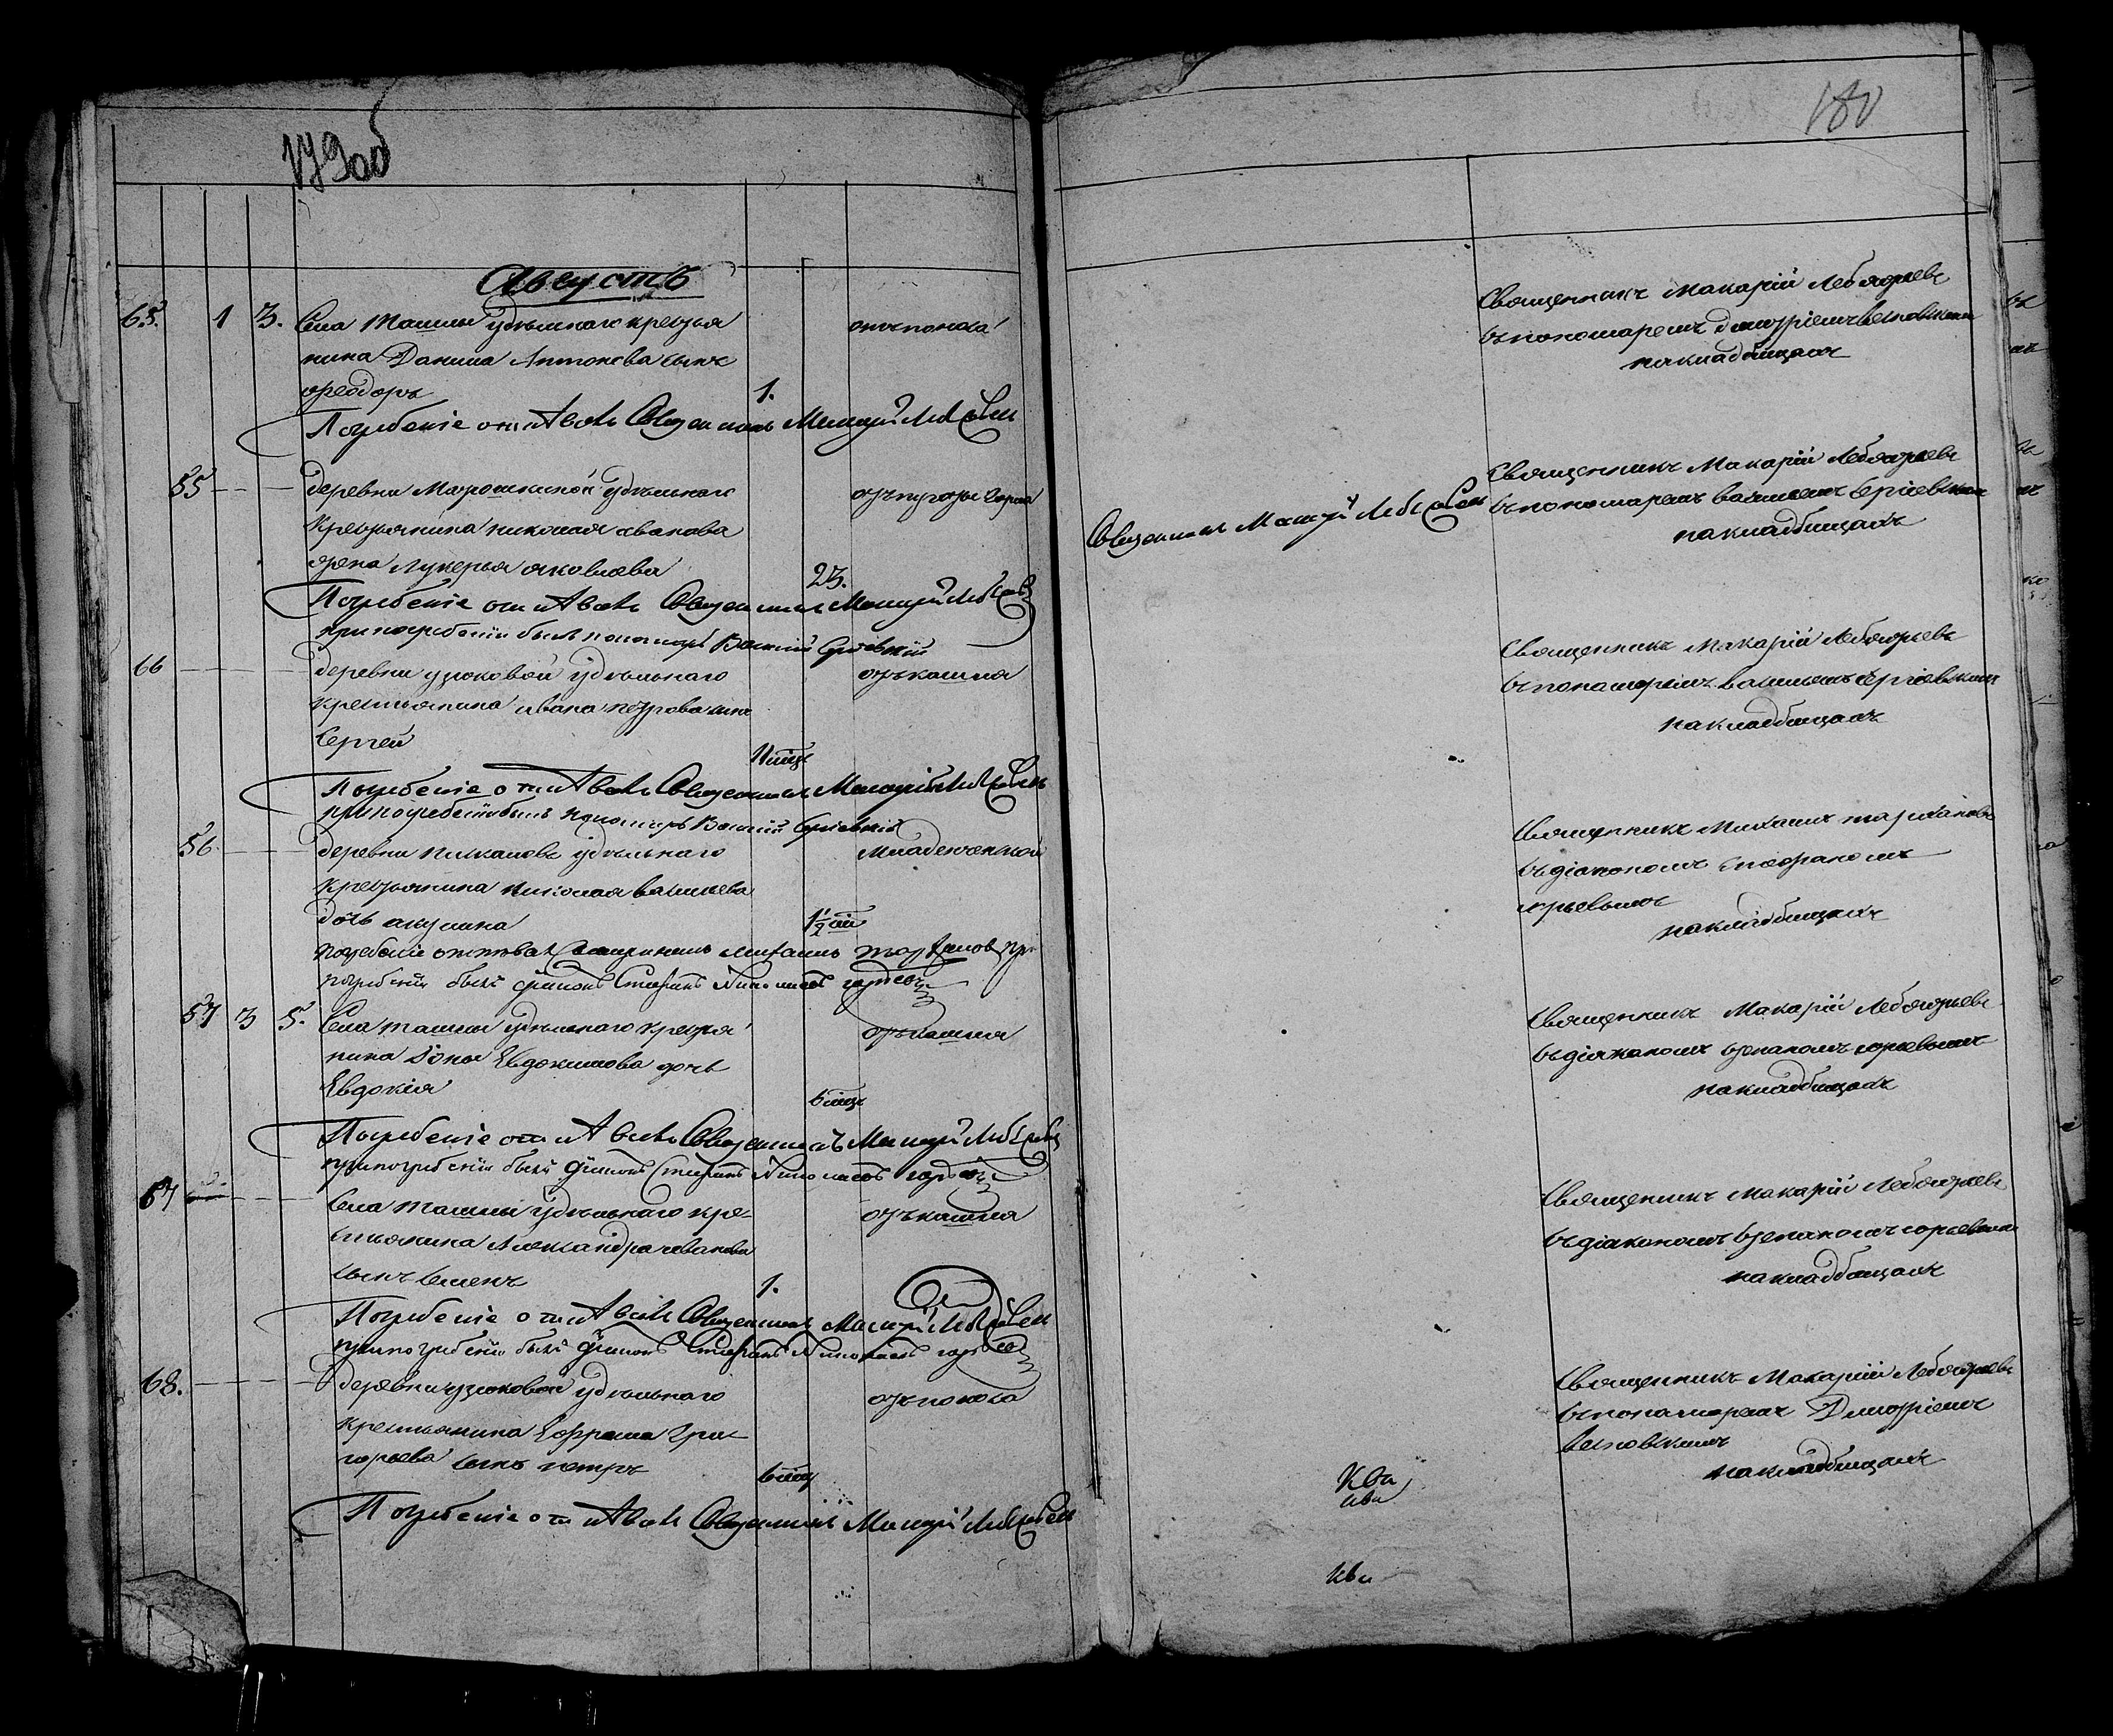 179об
180
Августъ
65. 1 3. Села Ташлы удѣльнаго крестья
нина Данила Антонова сынъ
Ѳеодоръ
1.
отъ поноса
Погребеніе отпѣвалъ Священникъ Макарій Лебяжьевъ
Священникъ Макарій Лебяжьевъ
съ пономаремъ Димитріемъ
на кладбищахъ
55 деревни Матюшкиной удѣльнаго
крестьянина Николая Иванова
жена Лукерья Яковлева
23.
отъ горячки
Погребеніе отпѣвалъ Священникъ Макарій Лебяжьевъ
при погребеніи былъ пономарь Василій Сергіевскій
Священникъ Макарій Лебяжьевъ
Священникъ Макарій Лебяжьевъ
съ пономаремъ Васильемъ Сергіевскимъ
на кладбищахъ
66 деревни Узюковой удѣльнаго
крестьянина Ивана Петрова сынъ
Сергей
отъ кашля
Погребеніе отпѣвалъ Священникъ Макарій Лебяжьевъ
при погребеніи былъ пономарь Василій Сергіевскій
Священникъ Макарій Лебяжьевъ
съ пономаремъ Васильемъ Сергіевскимъ
на кладбищахъ
56 деревни удѣльнаго
крестьянина Николая Васильева
дочь Акулина
1½
младенческой
погребеніе отпѣвалъ Священникъ Михаилъ при
погребеніи былъ діаконъ Стефанъ Николаевъ
Священникъ Михаилъ
съ діакономъ Стефаномъ
Юрьевымъ
на кладбищахъ
57 3 5. Села Ташлы удѣльнаго крестья
нина Іоны Евдокимова дочь
Евдокія
6 мѣся
отъ кашля
Погребеніе отпѣвалъ Священникъ Макарій Лебяжьевъ
при погребеніи былъ діаконъ Стефанъ Николаевъ
Священникъ Макарій Лебяжьевъ
съ діакономъ Степаномъ Юрьевымъ
на кладбищахъ
67 Села Ташлы удѣльнаго кре-
стьянина Александра Иванова
сынъ Семенъ
1.
отъ кашля
Погребеніе отпѣвалъ Священникъ Макарій Лебяжьевъ
при погребеніи былъ діаконъ Стефанъ Николаевъ
Священникъ Макарій Лебяжьевъ
съ діакономъ Степаномъ Юрьевымъ
на кладбищахъ
68. деревни Узюковой удѣльнаго
крестьянина Ефрема Гри-
горьева сынъ Петръ
6 мѣся
отъ поноса
Погребеніе отпѣвалъ Священникъ Макарій Лебяжьевъ
Священникъ Макарій Лебяжьевъ
съ пономаремъ Димитріемъ
на кладбищахъ